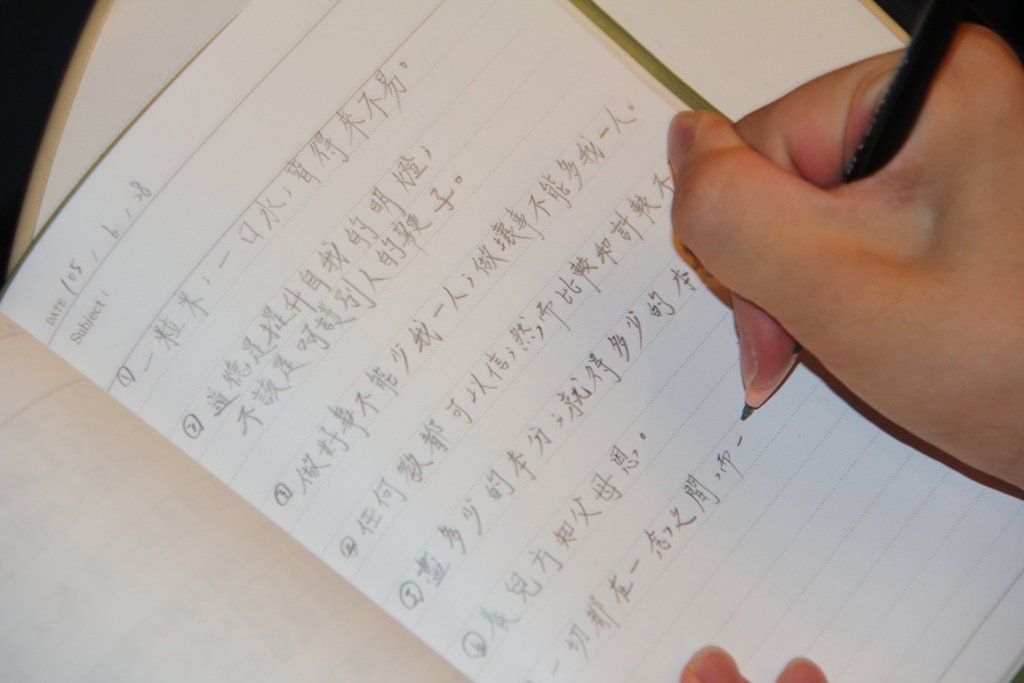 DATE 105 . 6 . 28
Subject :
① 一粒米；一口水；皆得來不易。
② 道德是提升自我的明燈；
不該是呵護別人的鞭子。
③ 做好事不能少我一人；做壞事不能多我一人。
④ 任何教都可以信；然而比較和計較不
⑤ 盡多少的本分；就得多少的本
⑥ 養兒方知父母恩。
一切都在一念之間，而一